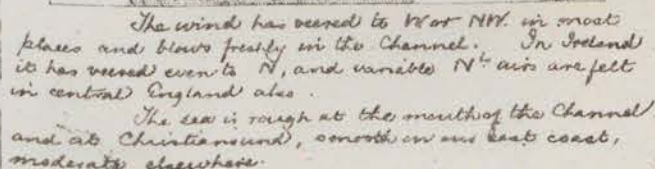 The wind has veered to W or NW. in most
places and blows freshly in the Channel. In Ireland
it has veered even to N, and variable Nly airs are felt
in central England also.
The sea is rough at the mouth of the Channel
and at Christiansund, smooth on our east coast,
moderate elsewhere.